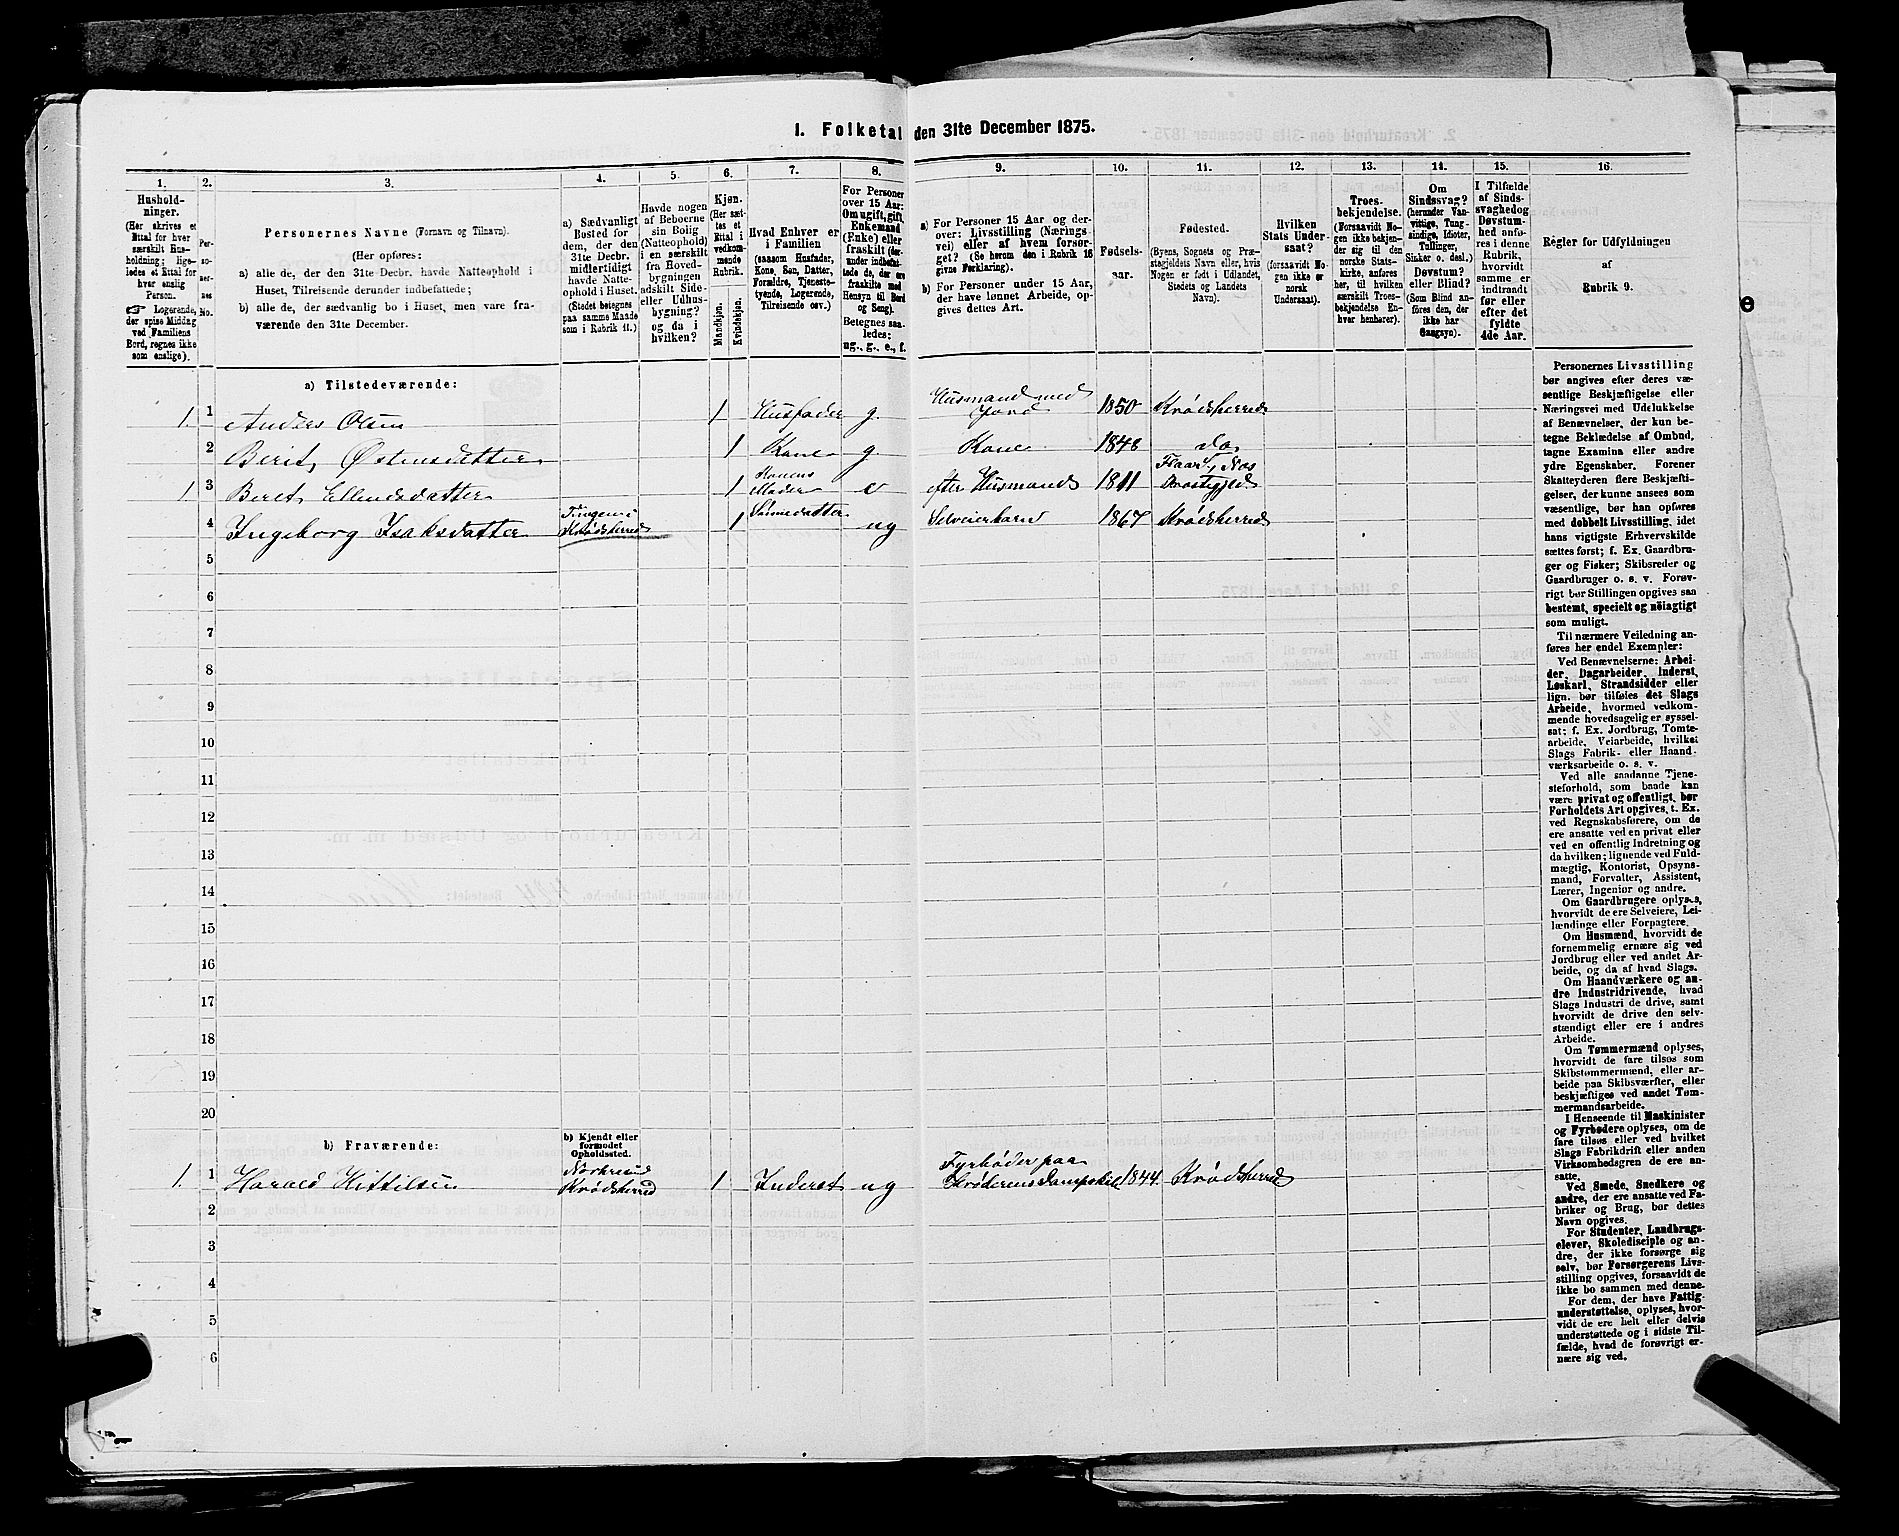 1. Folketal den 31te December 1875.
1. 2. 3. 4. 5. 6. 7. 8. 9. 10. 11. 12. 13. 14. 15. 16.
Hushold-
ninger.
(Her skrives et
Ettal for hver
særskilt Hus-
holdning; lige-
ledes et Ettal for
hver enslig
Person.
☞ Logerende,
der spise Middag
ved Familiens
Bord, regnes ikke
som enslige).
Per-
so-
ner-
nes
No.
Personernes Navne (Fornavn og Tilnavn).
(Her opføres:
a) alle de, der den 31te Decbr. havde Natteophold i
Huset, Tilreisende derunder indbefattede;
b) alle de, der sædvanlig bo i Huset, men vare fra-
værende den 31te December.
a) Sædvanligt
Bosted for
dem, der den
31te Decbr.
midlertidigt
havde Natte-
ophold i Huset.
(Stedet betegnes
paa samme Maade
som i Rubrik 11.)
Havde nogen
af Beboerne
sin Bolig
(Natteophold)
i en særskilt
fra Hoved-
bygningen
adskilt Side-
eller Udhus-
bygning?
og da i
hvilken?
Kjøn.
(Her sæt-
tes et
Ettal i
vedkom-
mende
Rubrik.
Mandkjøn.
Kvindekjøn.
Hvad Enhver er
i Familien
(saasom Husfader,
Kone, Søn, Datter,
Forældre, Tjeneste-
tyende, Logerende,
Tilreisende osv.)
For Personer
over 15 Aar:
Om ugift, gift,
Enkemand
(Enke) eller
fraskilt (der-
under indbefat-
tede de, der ere
fraskilte med
Hensyn til Bord
og Seng).
Betegnes saa-
ledes:
ug., g., e., f.
a) For Personer 15 Aar og der-
over: Livsstilling (Nærings-
vei) eller af hvem forsør-
get? (Se herom den i Rubrik 16
givne Forklaring).
b) For Personer under 15 Aar,
der have lønnet Arbeide, op-
gives dettes Art.
Fødsels-
aar.
Fødested.
(Byens, Sognets og Præ-
stegjeldets Navn eller, hvis
Nogen er født i Udlandet,
Stedets og Landets
Navn).
Hvilken
Stats Under-
saat?
(forsaavidt No-
gen ikke er
norsk
Undersaat).
Troes-
bekjendelse.
(Forsaavidt No-
gen ikke bekjen-
der sig til den
norske Stats-
kirke, anføres
her, til hvilken
særskilt Troes-
bekjendelse En-
hver henhører).
Om
Sindssvag?
(herunder Van-
vittige, Tung-
sindige, Idioter,
Tullinger,
Sinker o. desl.)
Døvstum?
eller Blind?
(Som Blind an-
føres den, der
ikke har
Gangsyn).
I Tilfælde
af Sinds-
svaghed og
Døvstum-
hed anfø-
res i denne
Rubrik,
hvorvidt
samme er
indtraadt
før eller
efter det
fyldte
4de Aar.
Regler for Udfyldningen
af
Rubrik 9.
a) Tilstedeværende:
1. 1 Anders Olsen 1 Husfader g. Husmand med Jord 1850 Krødsherred
2 Berit Østensdatter 1 Kone g Kone 1848 do
1 3 Beret Ellendsdatter 1 Konens Moder e efter Husmand 1811 Flaa S, Næs Præstegjeld
4 Ingeborg Isaksdatter Krødsherred 1 ug Selveierbarn 1867 Krødsherred
5
6
7
8
9
10
11
12
13
14
15
16
17
18
19
20
b) Fraværende:
b) Kjendt eller
formodet
Opholdssted.
1. 1 Harald Kittilsen Noresund Krødsherred 1 Inderst ug Fyrbøder paa Krøderens Dampskib 1844 Krødsherred
2
3
4
5
6
Personernes Livsstilling
bør angives efter deres væ-
sentlige Beskjæftigelse eller
Næringsvei med Udelukkelse
af Benævnelser, der kun be-
tegne Beklædelse af Ombud,
tagne Examina eller andre
ydre Egenskaber. Forener
Skatteyderen flere Beskjæfti-
gelser, der kunne ansees som
væsentlige, bør han opføres
med dobbelt Livsstilling, idet
hans vigtigste Erhvervskilde
sættes først; f. Ex. Gaardbru-
ger og Fisker; Skibsreder og
Gaardbruger o. s. v. Forøv-
rigt bør Stillingen opgives saa
bestemt, specielt og nöiagtigt
som muligt.
Til nærmere Veiledning an-
føres her endel Exempler:
Ved Benævnelserne: Arbei-
der, Dagarbeider, Inderst,
Løskarl, Strandsidder eller
lign. bør tilføies det Slags
Arbeide, hvormed vedkom-
mende hovedsagelig er syssel-
sat; f. Ex. Jordbrug, Tomte-
arbeide, Veiarbeide, hvilket
Slags Fabrik- eller Haand-
værksarbeide o. s. v.
Ved alle saadanne Tjene-
steforhold, som baade kan
være privat og offentligt, bør
Forholdets Art opgives, t. Ex.
ved Regnskabsførere, om de
ere ansatte ved en privat eller
ved en offentlig Indretning og
da hvilken; lignende ved Fuld-
mægtig, Kontorist, Opsyns-
mand, Forvalter, Assistent,
Lærer, Ingeniør og andre.
Om Gaardbrugere oplyses,
hvorvidt de ere Selveiere, Lei-
lændinge eller Forpagtere.
Om Husmænd, hvorvidt de
fornemmelig ernære sig ved
Jordbrug eller ved andet Ar-
beide, og da af hvad Slags.
Om Haandværkere og an-
dre Industridrivende, hvad
Slags Industri de drive, samt
hvorvidt de drive den selv-
stændigt eller ere i andres
Arbeide.
Om Tømmermænd oplyses,
hvorvidt de fare tilsøs som
Skibstømmermænd, eller ar-
beide paa Skibsværfter, eller
beskjæftiges ved andet Tøm-
mermandsarbeide.
I Henseende til Maskinister
og Fyrbødere oplyses, om de
fare tilsøs eller ved hvilket
Slags Fabrikdrift eller anden
Virksomhedsgren de ere an-
satte.
Ved Smede, Snedkere og
andre, der ere ansatte ved Fa-
briker og Brug, bør dettes
Navn opgives.
For Studenter, Landbrugs-
elever, Skoledisciple og an-
dre, der ikke forsørge sig
selv, bør Forsørgerens Livs-
stilling opgives, forsaavidt de
ikke bo sammen med denne.
For dem, der have Fattig-
understøttelse, oplyses, hvor-
vidt de ere helt eller delvis
understøttede og i sidste Til-
fælde, hvad de forøvrigt er-
nære sig ved.